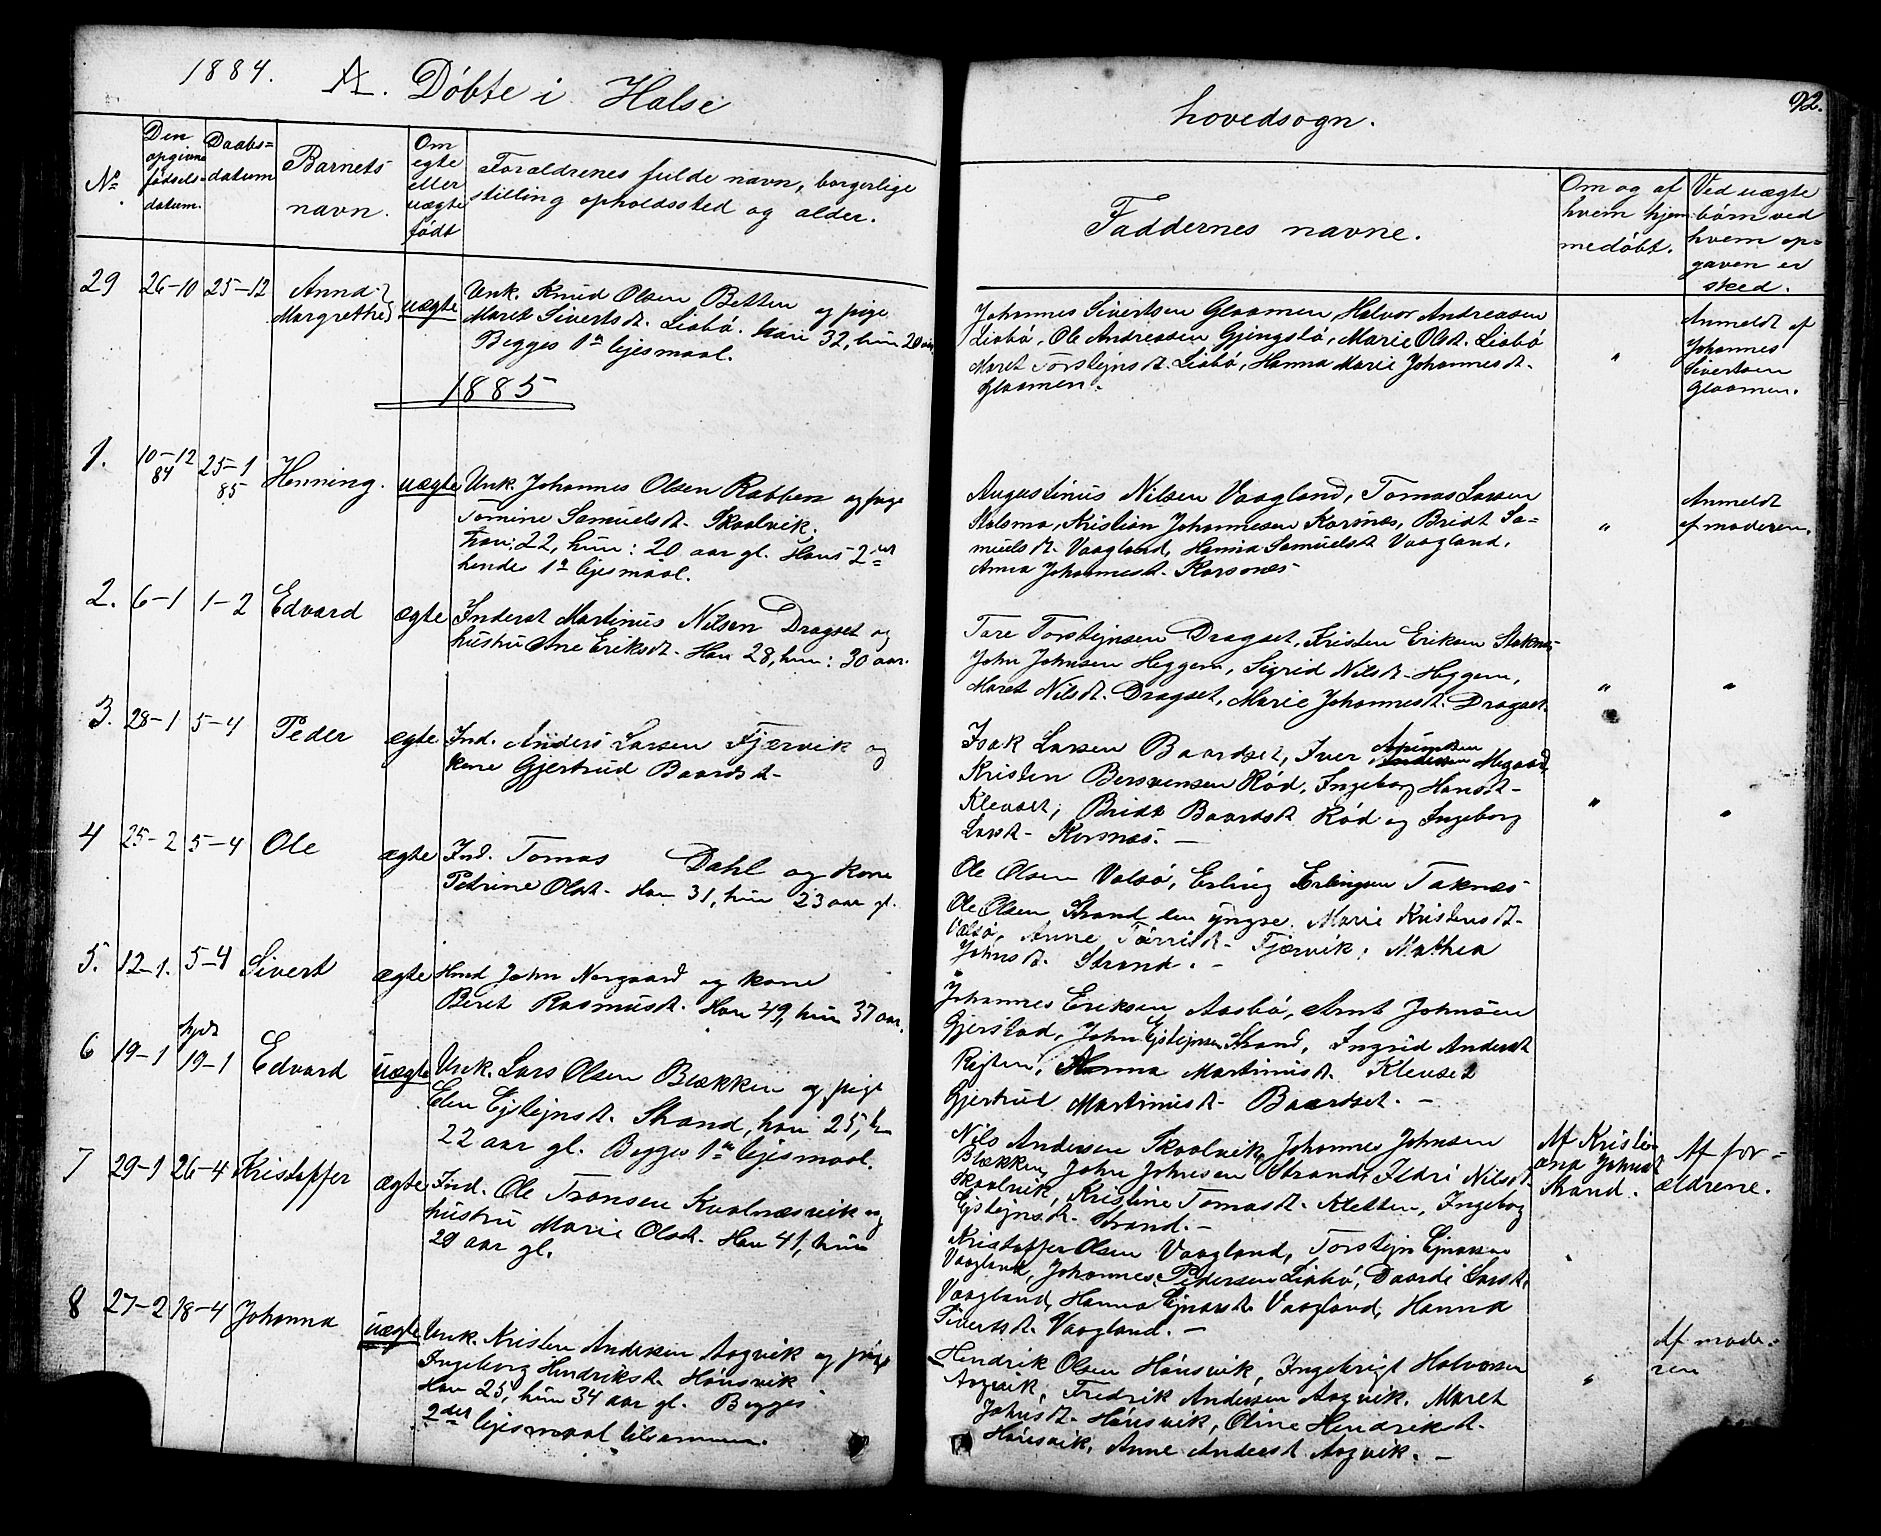 1884. A. Døbte i Halse
hovedsogn.
92.
No.
Den opgivne fødsels-datum.
Daabs-datum
Barnets navn.
Om egte eller uægte født
Forældrenes fulde navn, borgerlige
stilling opholdssted og alder.
Faddernes navne.
Om og af hvem hjemmedøbt.
Ved uægte børn ved hvem opgaven er sked.
29 26-10 25-12 Anna Margrethe uægte
Unk. Knud Olsen Betten og pige
Maret Sivertsdt. Liabø. han 32, hun 20 aar
Begges 1ste lejesmaal.
Johannes Sivertsen Glaamen, Halvor Andreassen
Liabø, Ole Andreassen Gjengstø, Marie Olsdt. Liabø
Maret Torstejnsdt. Liabø, Hanna Marie Johannesdt.
Glaamen.
"
Anmeldt af
Johannes
Sivertsen
Glaamen.
1885
1. 10-12 84 25-1 85 Henning. uægte
Unk. Johannes Olsen Rabben og pige
Tomine Samuelsdt. Skaalvik.
han: 22, hun: 20 aar gl. Hans 2det
hendes 1ste lejesmaal.
Augustinus Nilsen Vaagland, Tomas Larsen
Stolsmo, Kristian Johannesen Korsnæs, Bridt Sa-
muelsdt. Vaagland, Hanna Samuelsdt Vaagland,
Anna Johannesdt. Korsnæs
"
Anmeldt
af moderen.
2. 6-1 1-2 Edvard ægte
Inderst Martinus Nilsen Dragset og
hustru Ane Eriksdt. Han 28, hun: 30 aar.
Tore Torstejnsen Dragset, Kristen Eriksen Stoknæs
John Johnsen Heggem, Sigrid Nilsdt. Heggem,
Maret Nilsdt. Dragset, Marie Johannesdt. Dragset.
" "
3. 28-1 5-4 Peder ægte
Ind. Anders Larsen Fjærvik og
kone Gjertrud Baardsdt.
Isak Larsen Baardset, Iver Megaard,
Kristen Bersvensen Rød, Ingeborg Hansdt.
Klevset, Bridt Baardsdt. Rød og Ingeborg
Larsdt. Korsnæs. —
" "
4 25-2 5-4 Ole ægte
Ind. Tomas Dahl og kone
Petrine Olsdt. Han 31, hun 23 aar gl.
Ole Olsen Valsø, Erling Erlingsen Taknæs
Ole Olsen Strand den yngre. Marie Kristensdt.
Valsø, Anne Tørrisdt. Fjærvik, Mathea
Johnsdt. Strand. —
5. 12-1. 5-4 Sivert ægte
Hmd John Norgaard og kone
Beret Rasmusdt. Han 49, hun 37 aar.
Johannes Eriksen Aasbø, Arnt Johnsen
Gjerstad, John Ejstejnsen Strand, Ingrid Andersdt
Rejten, Hanna Martinusdt. Klevset
Gjertrud Martinusdt. Baardset. —
6 19-1 hjdt 19-1 Edvard uægte
Unk. Lars Olsen Blekken og pige
Elen Ejstejnsdt. Strand, han 25, hun
22 aar gl. Begges 1ste lejesmaal.
Nils Andersen Skaalvik, Johannes Johnsen
Blekken, John Johnsen Strand, Ildri Nilsdt.
Skaalvik, Kristine Tomasdt. Kletten, Ingeborg
Ejstejnsdt. Strand. —
Af Kristi-
ane Johnsdt
Strand.
Af for-
ældrene.
7 29-1 26-4 Kristoffer ægte
Ind. Ole Tronsen Kvalnæsvik og
hustru Marie Olsdt. Han 41, hun
29 aar gl.
Kristoffer Olsen Vaagland, Torstejn Ejnarsen
Vaagland, Johannes Pedersen Liabø, Baardi Larsdt.
Vaagland, Hanna Ejnarsdt. Vaagland, Hanna
Sivertsdt. Vaagland. —
8 27-2 18-4 Johanna uægte
Unk. Kristen Andersen Aagvik og pige
Ingeborg Hendriksdt. Hønsvik
Han 25, hun 34 aar gl. Begges
2det lejesmaal tilsammen.
Hendrik Olsen Hønsvik, Ingebrigt Halvorsen
Aagvik, Fredrik Andersen Aagvik, Maret
Johnsdt. Hønsvik, Oline Hendriksdt.
Hønsvik, Anne Andersdt. Aagvik. —
"
Af mode-
ren